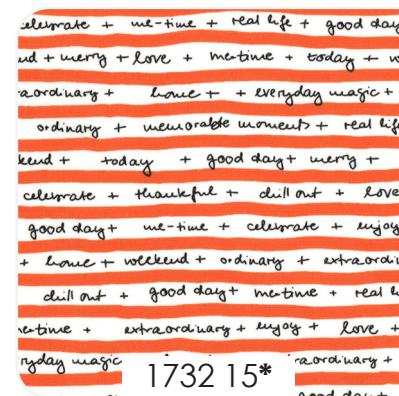 celebrate + me-time + real life + good day
nd + merry + love + me-time + today + w
raordinary + home + + everyday magic +
ordinary + memorable moments + real lif
kend + today + good day + merry +
celebrate + thankful + chill out + love
good day + me-time + celebrate + enjoy
+ home + weekend + ordinary + extraordi
chill out + good day + me-time + real l
e-time + extraordinary + enjoy + love +
ryday magic raordinary +
1732 15*
good day +